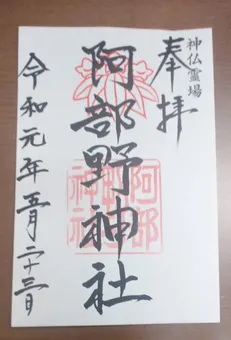 神仏霊場
奉拝
阿部野神社
令和元年五月二十三日